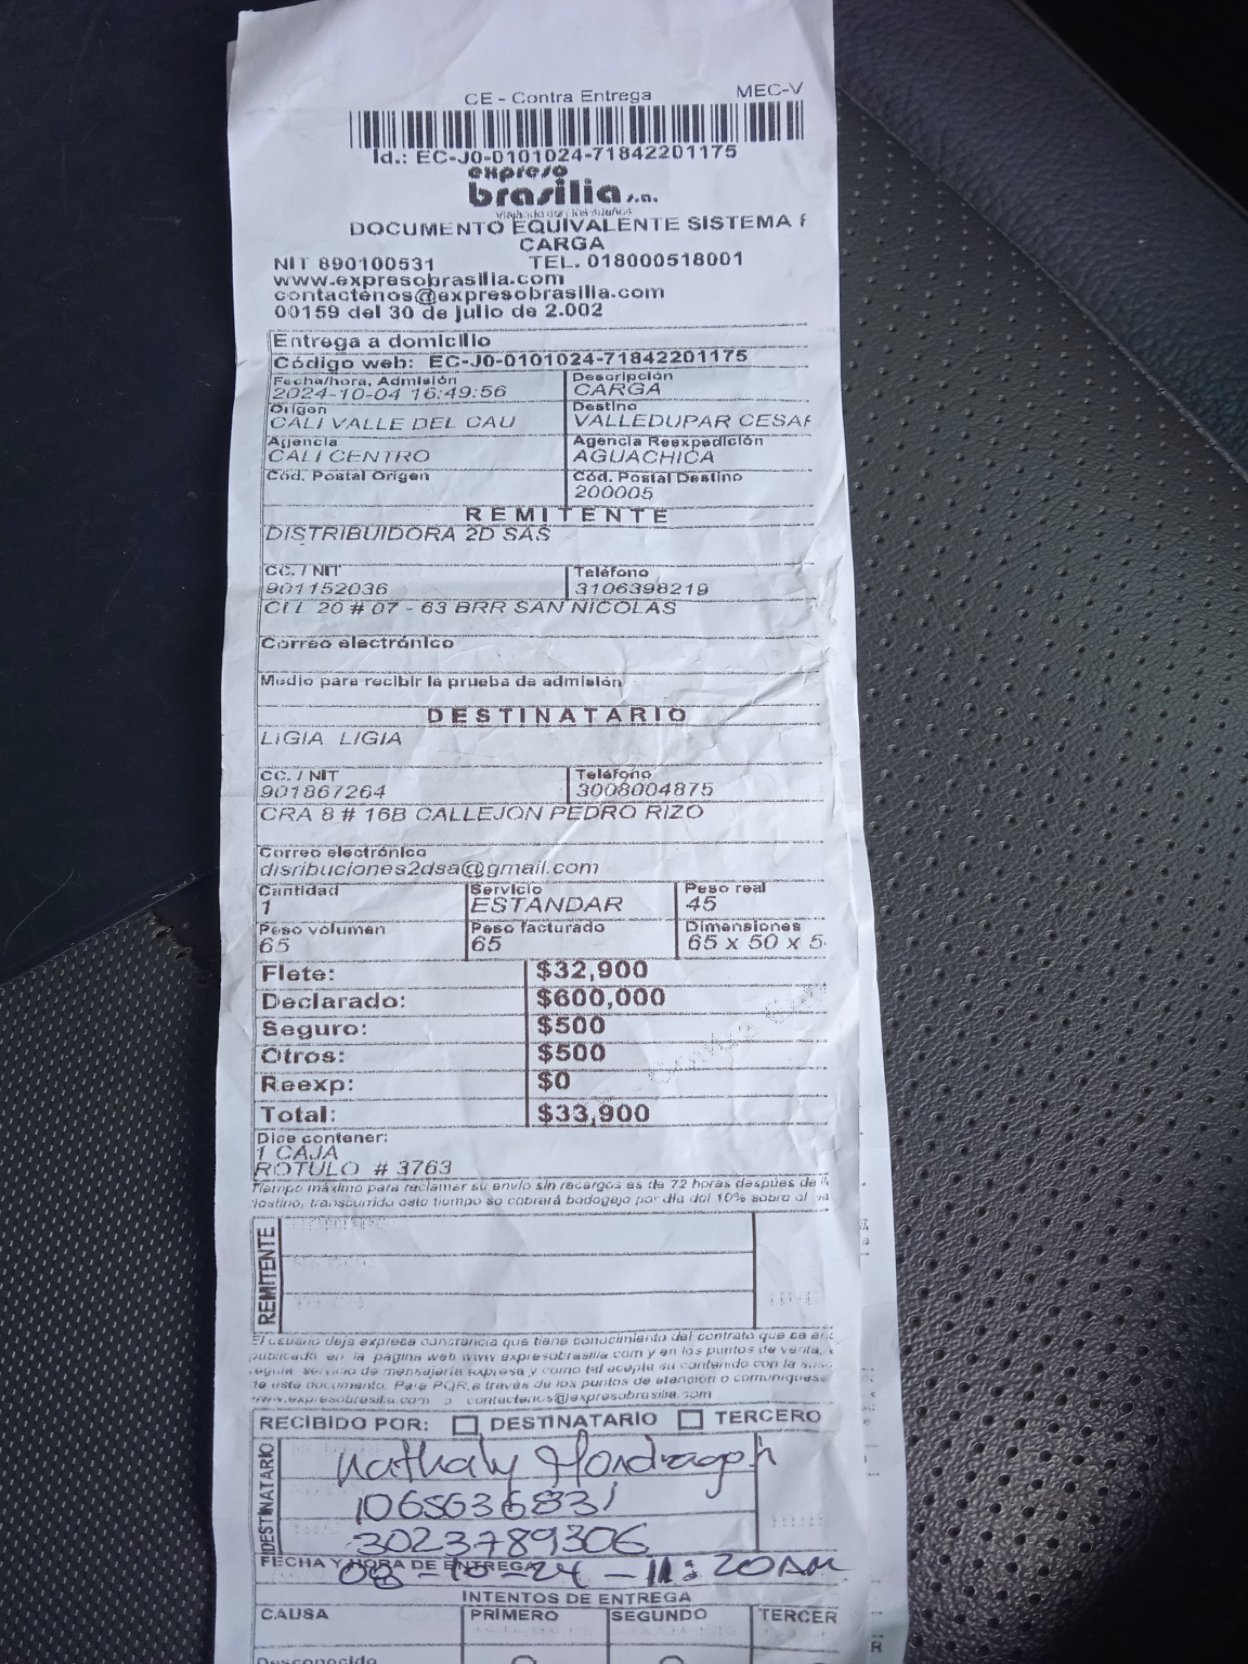 CE - Contra Entrega MEC-V
Id.: EC-J0-0101024-71842201175
expreso
brasilia s.a.
DOCUMENTO EQUIVALENTE SISTEMA
CARGA
NIT 890100531 TEL. 018000518001
www.expresobrasilia.com
contactenos@expresobrasilia.com
00159 del 30 de julio de 2.002
Entrega a domicilio
Código web: EC-J0-0101024-71842201175
Fecha/hora, Admisión Descripción
2024-10-04 16:49:56 CARGA
Origen Destino
CALI VALLE DEL CAU VALLEDUPAR CESAR
Agencia Agencia Reexpedición
CALI CENTRO AGUACHICA
Cód. Postal Origen Cód. Postal Destino
200005
REMITENTE
DISTRIBUIDORA 2D SAS
CC. / NIT Teléfono
901152036 3106398219
CLL 20 # 07 - 63 BRR SAN NICOLAS
Correo electrónico
Medio para recibir la prueba de admisión
DESTINATARIO
LIGIA LIGIA
CC. / NIT Teléfono
901867264 3008004875
CRA 8 # 16B CALLEJON PEDRO RIZO
Correo electrónico
disribuciones2dsa@gmail.com
Cantidad Servicio Peso real
1 ESTANDAR 45
Peso volumen Peso facturado Dimensiones
65 65 65 x 50 x 5
Flete: $32,900
Declarado: $600,000
Seguro: $500
Otros: $500
Reexp: $0
Total: $33,900
Dice contener:
1 CAJA
ROTULO # 3763
Tiempo máximo para reclamar su envío sin recargos es de 72 horas después de
destino, transcurrido este tiempo se cobrará bodegaje por día del 10% sobre el va
REMITENTE
El usuario deja expresa constancia que tiene conocimiento del contrato que se en
publicado en la página web www.expresobrasilia.com y en los puntos de venta,
regula servicio de mensajería expresa y como tal acepta su contenido con la sus
de este documento. Para PQR a través de los puntos de atención o comuníquese
www.expresobrasilia.com o contactenos@expresobrasilia.com
RECIBIDO POR: DESTINATARIO TERCERO
DESTINATARIO
Nathaly Mondragon
1065636831
3023789306
FECHA Y HORA DE ENTREGA
08-10-24 - 11:20AM
INTENTOS DE ENTREGA
CAUSA PRIMERO SEGUNDO TERCER
Desconocido